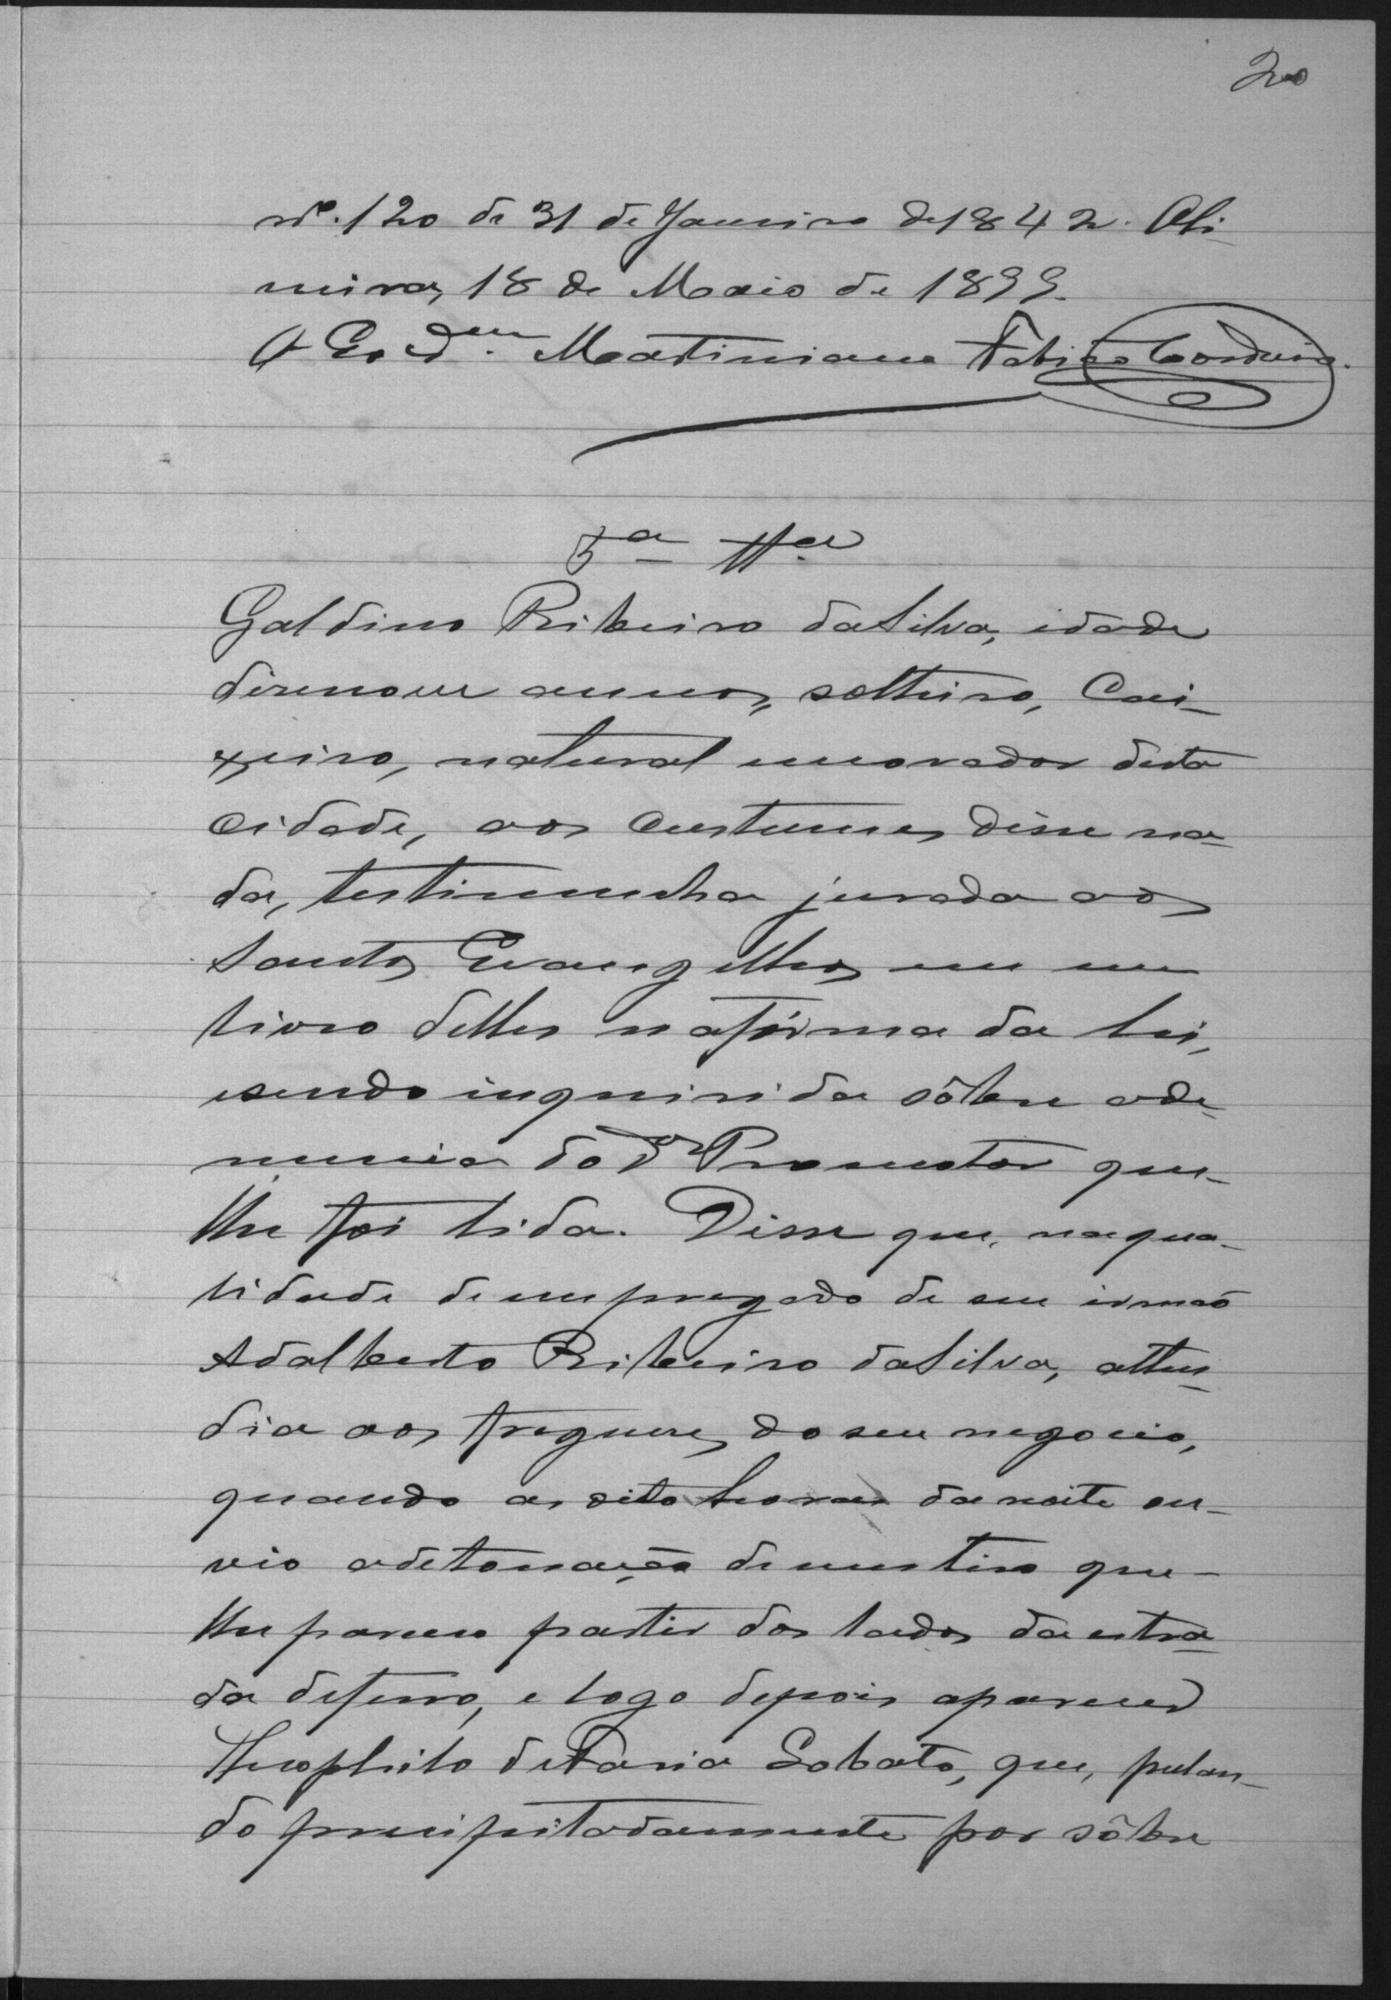 20
nº. 120 de 31 de Janeiro de 1842. Oli-
veira, 18 de Maio de 1899.
O Esc.am Martiniano Fabiano Cordeiro.
5ª Ttª
Galdino Ribeiro da Silva, idade
dizenove annos, solteiro, Cai-
xeiro, natural e morador desta
cidade, aos custumes disse na-
da, testimunha jurada aos
Santos Evangelhos em um
livro delles na fórma da lei,
e sendo inquirida sôbre a de-
nuncia do Dr Promotor que-
lhe foi lida. Disse que, na qua-
lidade de empregado de seu irmaõ
Adalberto Ribeiro da Silva, atten-
dia aos freguezes do seu negocio,
quando as oito horas da noite ou-
vio a detonação de um tiro que-
lhe pareceu partir dos lados da estra-
da de ferro, e logo depois apareceu
Theophilo de Faria Lobato, que, pulan-
do precipitadamente por sôbre